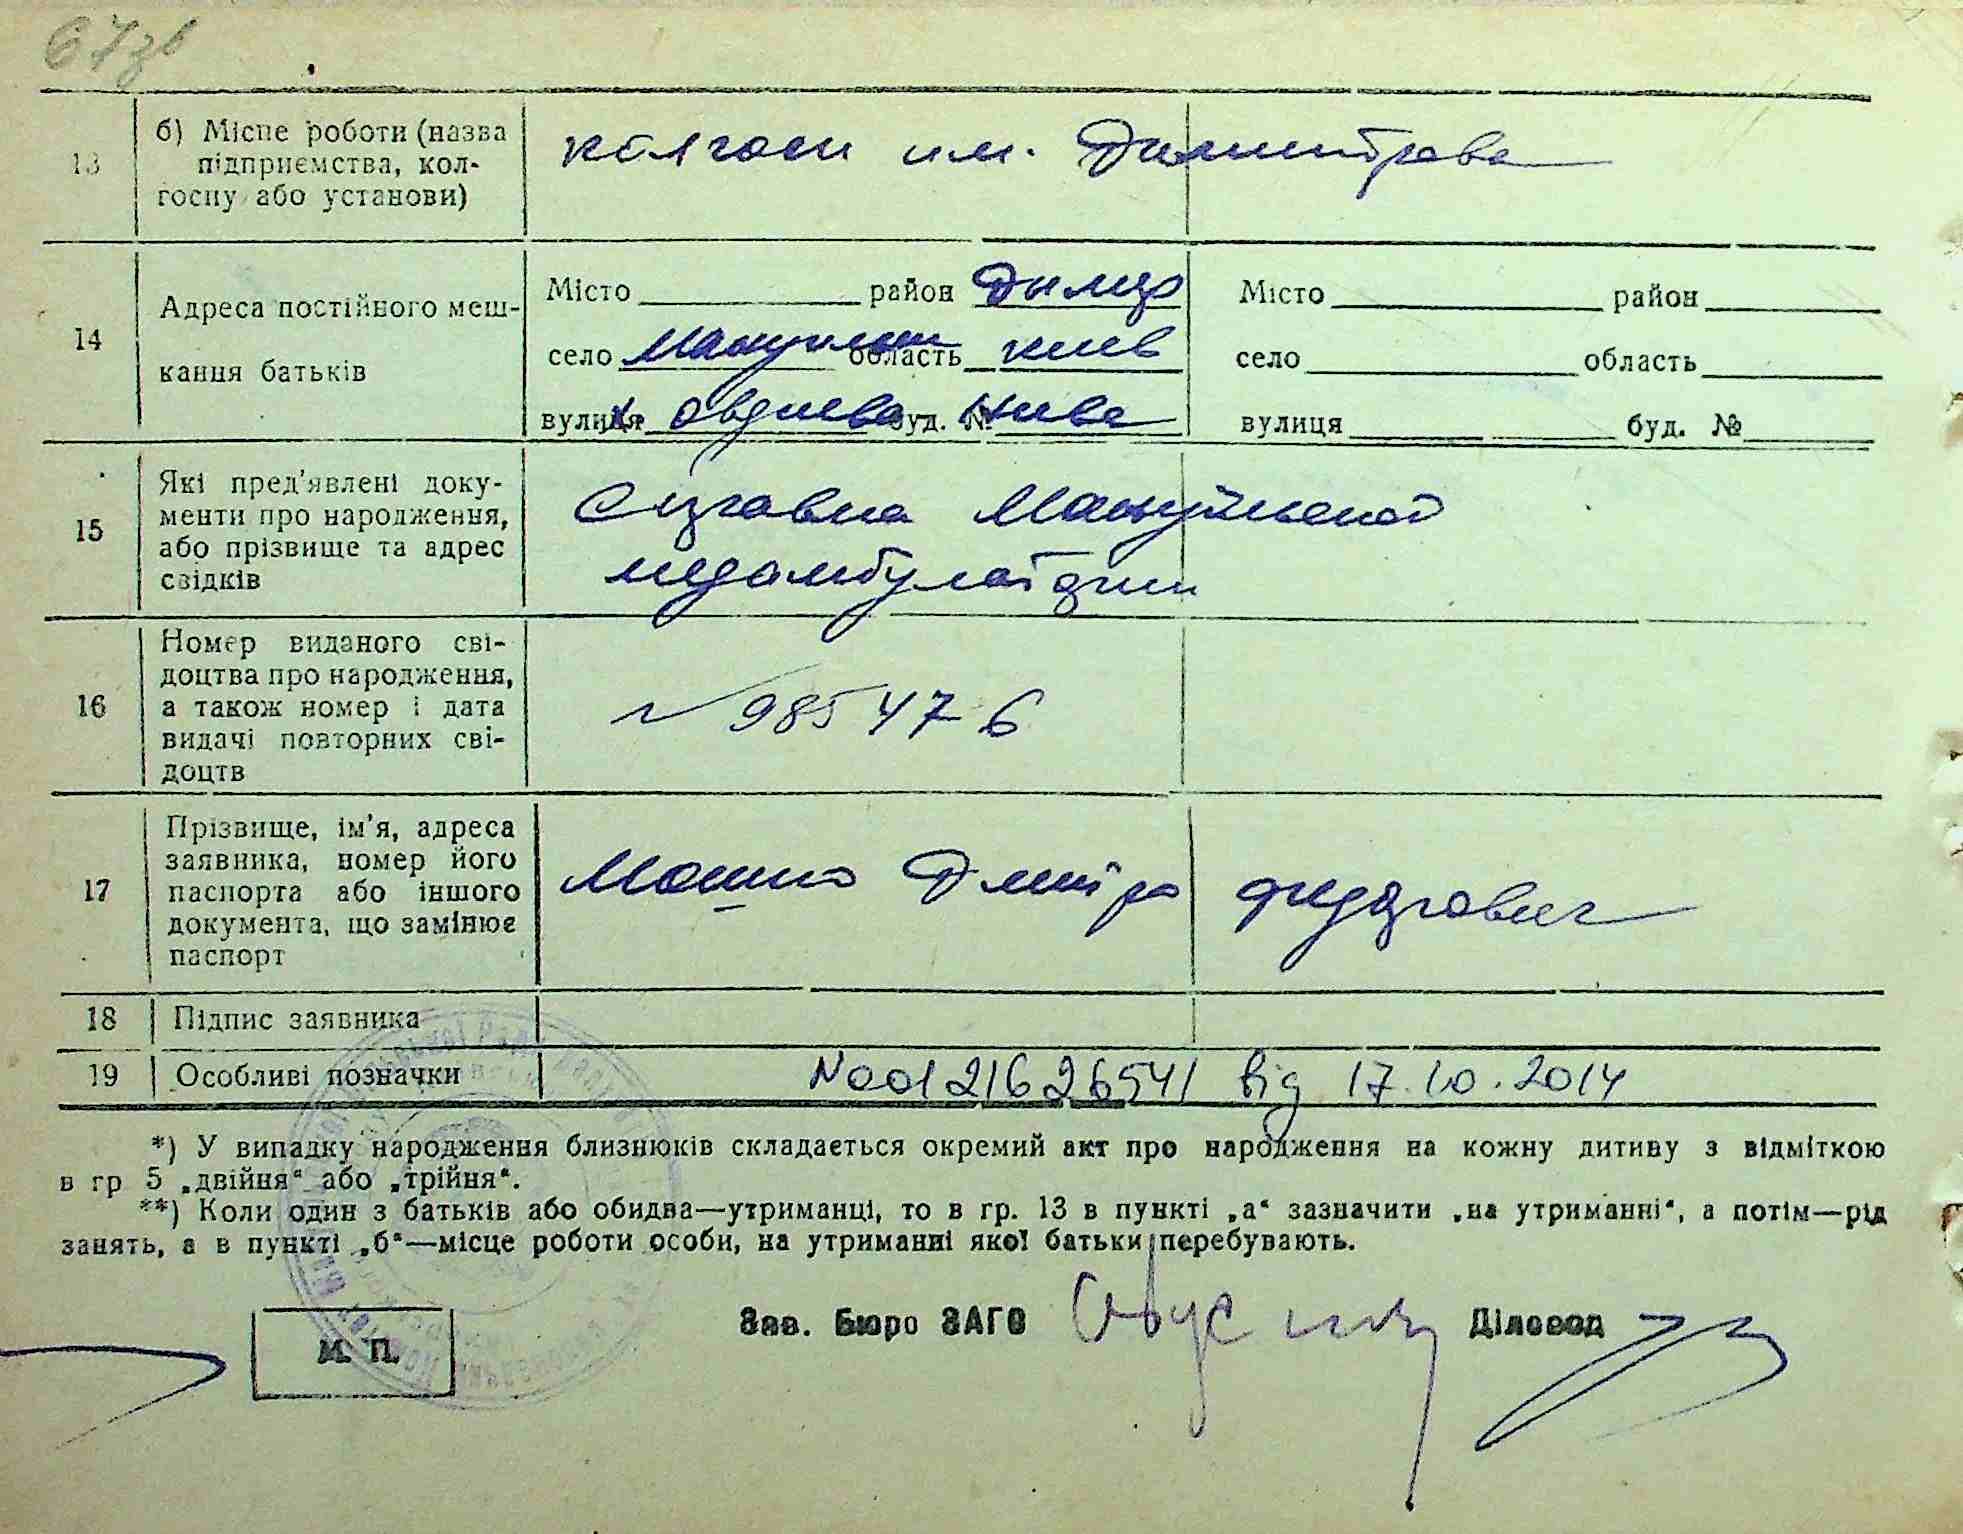 67зв
13 б) Місце роботи (назва підприємства, колгоспу або установи) колгосп им. Димитрова
14 Адреса постійного мешкання батьків
Місто район Дымер Місто район
село Мануильск область киев село область
вулиця х. овдиева буд. № нива вулиця буд. №
15 Які пред'явлені документи про народження, або прізвище та адрес свідків
Справка Мануильской
медамбулатории
16 Номер виданого свідоцтва про народження, а також номер і дата видачі повторних свідоцтв
№ 985476
17 Прізвище, ім'я, адреса заявника, номер його паспорта або іншого документа, що замінює паспорт
Мошко Дмитро Федорович
18 Підпис заявника
19 Особливі позначки N00121626541 від 17.10.2014
*) У випадку народження близнюків складається окремий акт про народження на кожну дитину з відміткою
в гр 5 „двійня“ або „трійня“.
**) Коли один з батьків або обидва—утриманці, то в гр. 13 в пункті „а“ зазначити „на утриманні“, а потім—рід
занять, а в пункті „б“—місце роботи особи, на утриманні якої батьки перебувають.
Зав. Бюро ЗАГС Діловод
М. П.